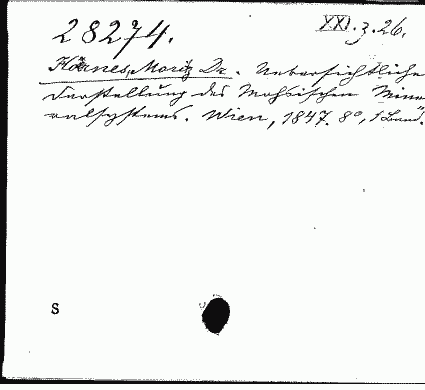 28274. XXI.z.26.
Hörnes, Moritz Dr. Uebersichtliche
Darstellung des Mohsischen Mine=
ralsystems. Wien, 1847. 8°, 1 Band.
S